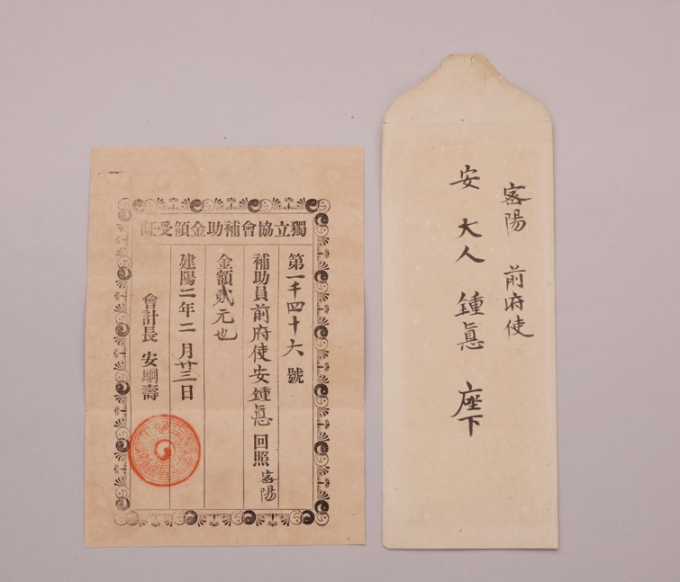 獨立協會補助金領受証
第一千四十六號
補助員前府使安鍾悳回照密陽
金額貳元也
建陽二年二月廿三日
會計長 安駉壽
密陽 前府使
安大人 鍾悳 座下